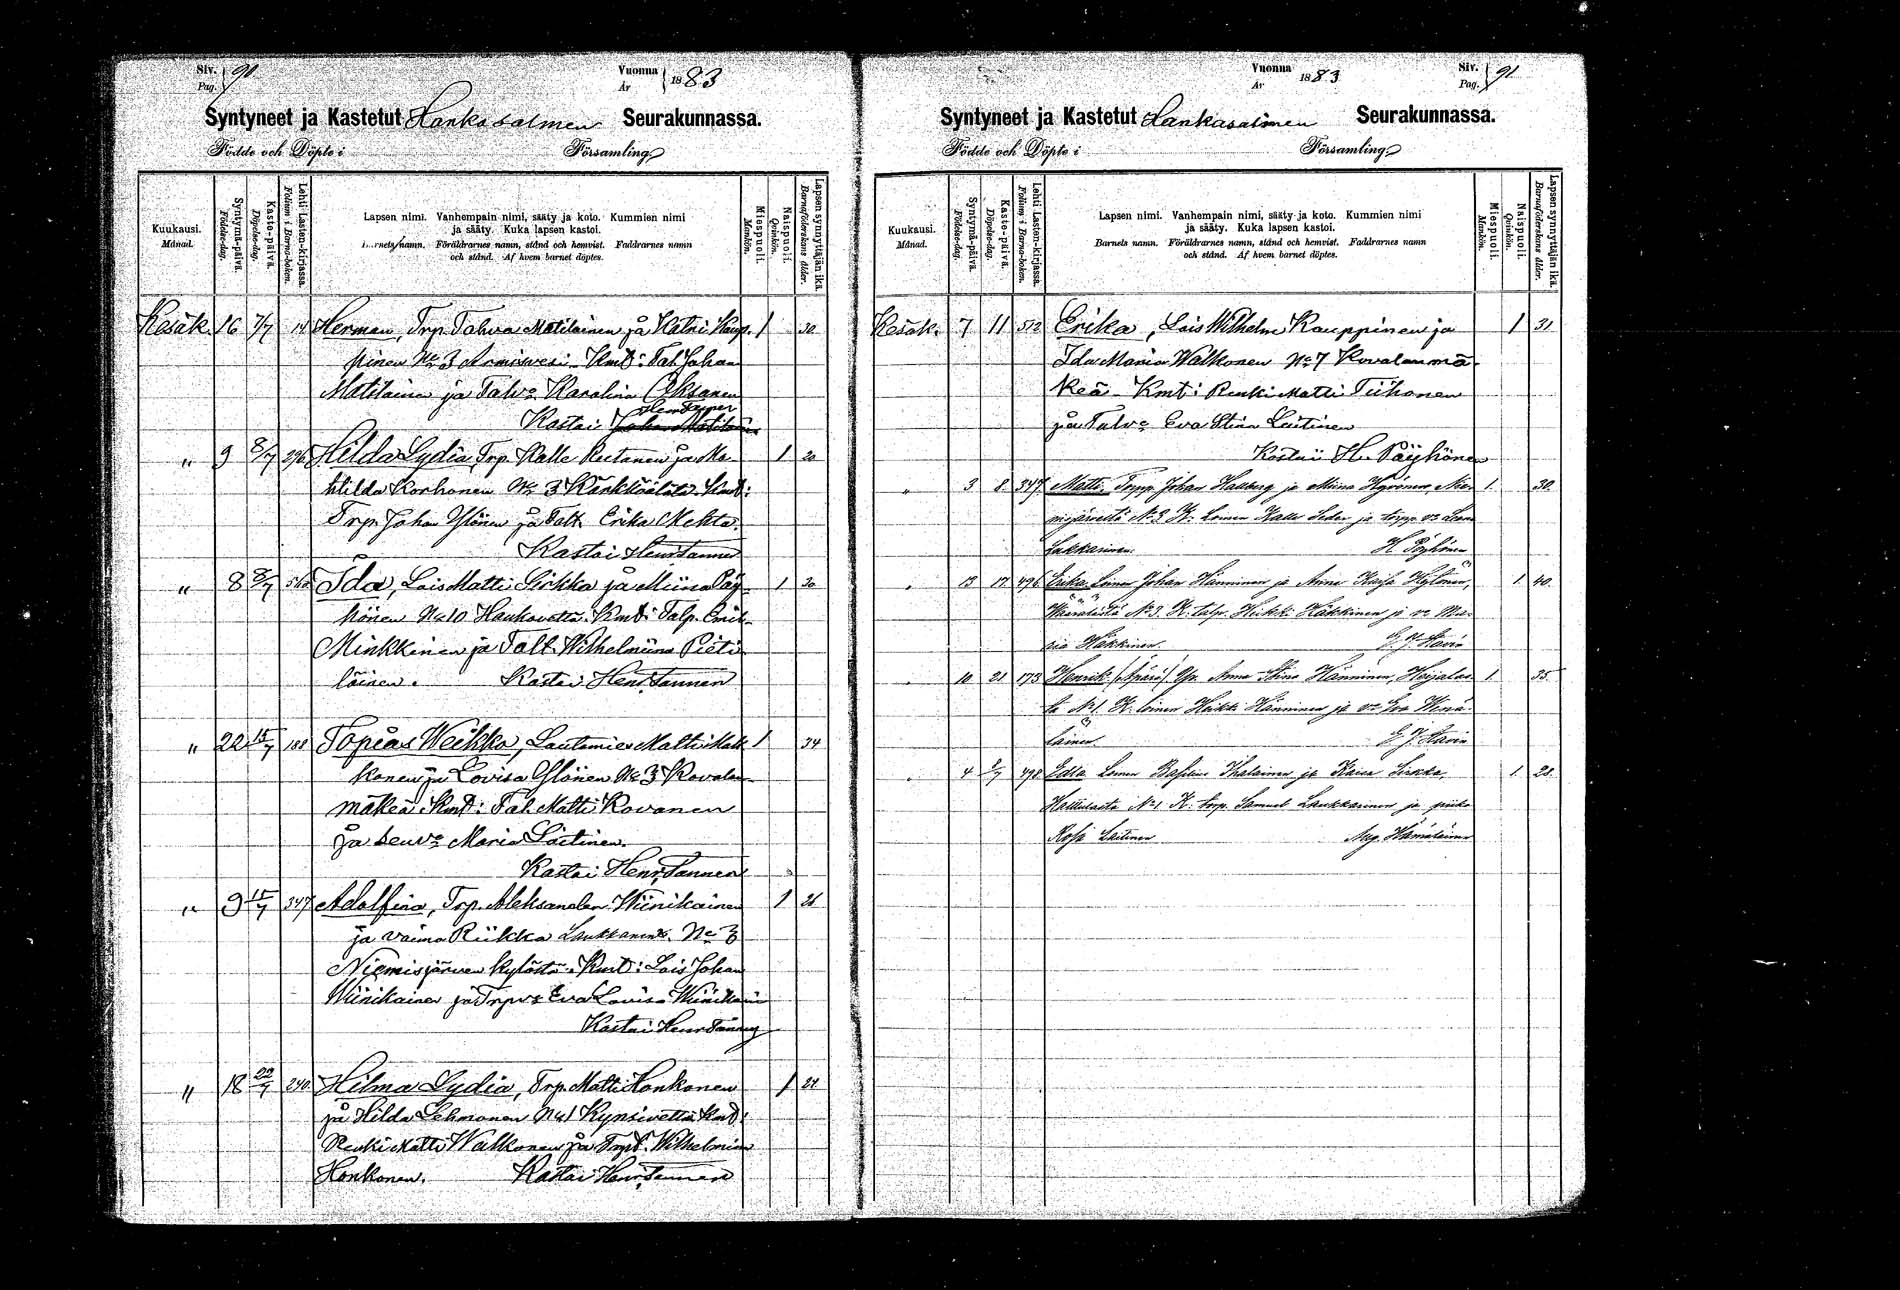 Siv. Pag. 90
Vuonna År 1883
Syntyneet ja Kastetut Hankasalmen Seurakunnassa.
Födde och Döpte i Församling
Kuukausi. Månad.
Syntymä-päivä. Födelse-dag.
Kaste-päivä. Döpelse-dag.
Lehti Lasten-kirjassa. Folium i Barna-boken.
Lapsen nimi. Vanhempain nimi, sääty ja koto. Kummien nimi
ja sääty. Kuka lapsen kastoi.
Barnets namn. Föräldrarnes namn, stånd och hemvist. Faddrarnes namn
och stånd. Af hvem barnet döptes.
Miespuoli. Mankön.
Naispuoli. Qvinkön.
Lapsen synnyttäjän ikä. Barnaföderskans ålder.
Kesäk. 16 7/7 14 Herman, Trp. Tahva Matilainen ja Katri Kaup- 1 30
pinen No 3 Armisvesi. Kmt: Tal. Johan
Matilainen ja Talv. Karolina Oksanen
Henr Tanner
Kastoi Johan Matilainen
" 9 8/7 296 Hilda Lydia, Trp. Kalle Rutanen ja Ma- 1 20
thilda Korhonen No 3 Kärkkäälätä. Kmt:
Trp. Johan Ylönen ja Talt. Erika Mehto.
Kastoi Henr Tanner
" 8 8/7 560 Ida, Lois Matti Sirkka ja Miina Pöy- 1 30
hönen No 10 Haukovatta. Kmt: Talp. Emil
Minkkinen ja Talt. Wilhelmiina Pieti-
läinen. Kastoi Henr. Tanner
" 22 15/7 188 Topias Weikko, Lautamies Matti Matt- 1 34
konen ja Lovisa Ylönen No 3 Kovalan-
mäkeä. Kmt: Tal. Matti Kovanen
ja seurv. Maria Laitinen.
Kastoi Henr. Tanner
" 9 15/7 347 Adolfina, Trp. Aleksander Wiinikainen 1 26
ja vaimo Riikka Laukkanen. No 3
Niemisjärven kylästä. Kmt: Lois Johan
Wiinikainen ja Trpv. Eva Lovisa Wiinikain
Kastoi Henr Tanner
" 18 22/7 240. Hilma Lydia, Trp. Matti Honkonen 1 21
ja Hilda Lehmonen No 1 Kynsivettä Kmt:
Renki Matti Walkonen ja Trpt. Wilhelmiin
Honkonen. Kastoi Henr. Tanner
Siv. Pag. 91
Vuonna År 1883
Syntyneet ja Kastetut Hankasalmen Seurakunnassa.
Födde och Döpte i Församling
Kuukausi. Månad.
Syntymä-päivä. Födelse-dag.
Kaste-päivä. Döpelse-dag.
Lehti Lasten-kirjassa. Folium i Barna-boken.
Lapsen nimi. Vanhempain nimi, sääty ja koto. Kummien nimi
ja sääty. Kuka lapsen kastoi.
Barnets namn. Föräldrarnes namn, stånd och hemvist. Faddrarnes namn
och stånd. Af hvem barnet döptes.
Miespuoli. Mankön.
Naispuoli. Qvinkön.
Lapsen synnyttäjän ikä. Barnaföderskans ålder.
Kesäk. 7 11 512 Erika, Lois Wilhelm Kauppinen ja 1 31
Ida Maria Walkonen No 7 Kovalanmä-
keä. Kmt: Renki Matti Tiihonen
ja Talv. Eva Stina Laitinen
Kastoi H. Pöyhönen
" 3 8. 347. Matti. Torpp. Johan Hallberg ja Miina Hyvönen, Nie- 1. 30.
misjärveltä No 3. K: Loinen Kalle Seder ja torpp. v.
Lukkarinen. H. Pöyhönen
" 13 17. 496. Erika. Loinen Johan Hänninen ja Anna Kaisa Hytönen, 1. 40.
No 3. K: talp. Heikki Häkkinen ja v. Ma-
ria Häkkinen. E. J. Stavén
" 10 21. 173. Henrik (Äpärä) Yp. Anna Stina Hänninen, 1. 35.
ta No 1. K: loinen Heikki Hänninen ja v. Eva Hämä-
läinen. E. J. Stavén
" 4 2/7 498. Edla Loinen Ihalainen ja Kaisa Sirkka, 1. 28.
No 1 K: torp. Samuel Laukkarinen ja piika
Rosa Laitinen Aug. Hämäläinen